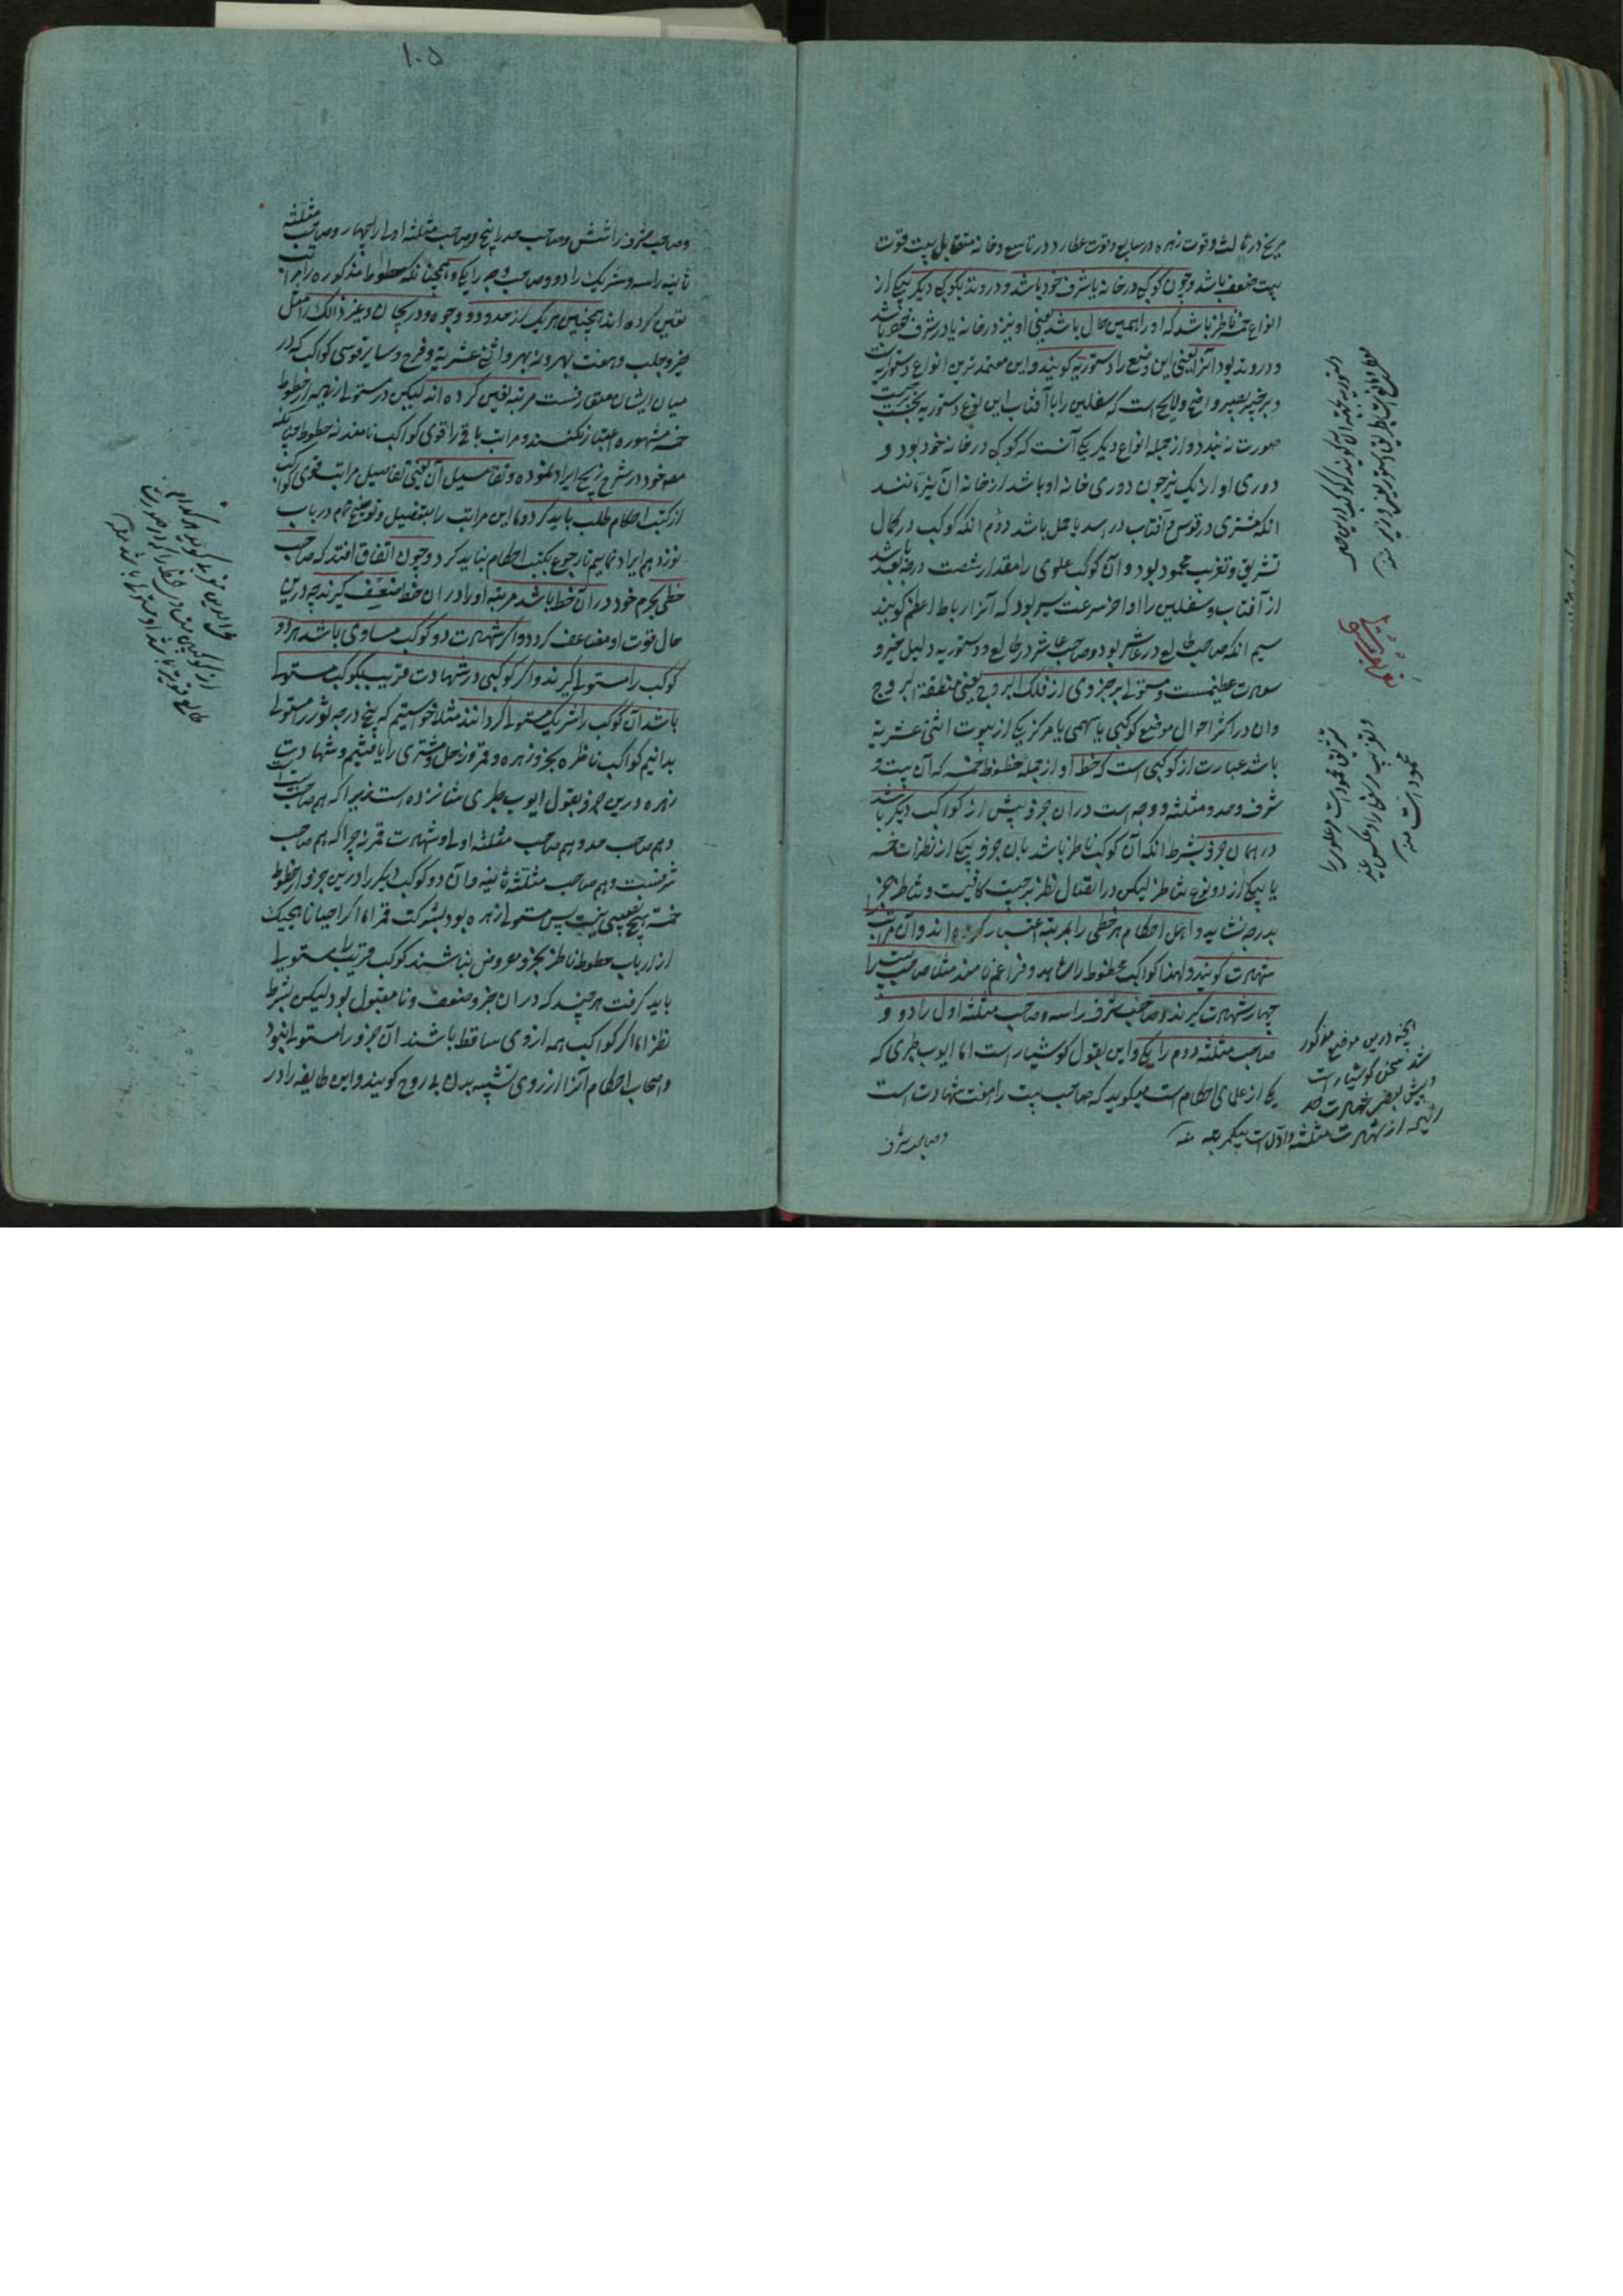 مریخ در ثالث و قوت زهره در سابع و قوت عطارد در تاسع و خانه متقابل بیت قوت
بیت ضعف باشد و چون کوکبی در خانه یا شرف خود باشد و در وتد بکوکبی دیگر بیکی از
انواع خمسه ناظر باشد که او را همین حال باشد یعنی او نیز در خانه یا در شرف خود باشد
و در وتد بود آنرا یعنی این وضع را دستوریه کویند و این معتمدترین انواع دستوریه است
و بر خبیر بصیر واضح و لایح است که سفلیین را با آفتاب این نوع دستوریه بحسب
صورت نه بندد و از جمله انواع دیکر یکی آنست که کوکبی در خانه خود بود و
دوری او از یک نیر چون دوری خانه او باشد از خانه آن نیر مانند
انکه مشتری در قوس و آفتاب در اسد یا حمل باشد دوم انکه کوکب در کمال
تشریق و تغریب محمود بود و آن کوکب علوی را مقدار شصت درجه بعد باشد
از آفتاب و سفلیین را اواخر سرعت سیر بود که آنرا رباط اعظم کویند
سیم انکه صاحب طالع در عاشر بود و صاحب عاشر در طالع و دستوریه دلیل خیر و
سعادت عظیمست و مستولی بر جزوی از فلک البروج یعنی منطقة البروج
وان در اکثر احوال موضع کوکبی یا سهمی یا مرکز یکی از بیوت اثنی عشریة
باشد عبارت از کوکبی است که حظ او از جمله حظوظ خمسه که آن بیت و
شرف و حد و مثلثه و وجه است در ان جزو بیش از کواکب دیکر باشد
در همان جزو بشرط انکه آن کوکب ناظر باشد بان جزو بیکی از نظرات خمسه
یا بیکی از دو نوع تناظر لیکن در اتصال نظر برجیت کافیست و تناظر بجز
بدرجه نشاید و اهل احکام هر حظی را بمرتبه اعتبار کرده اند و آن مراتب
شهادت کویند و لهذا کواکب حظوظ را شاهد و مزاعم نامند مثلا صاحب بیت را
چهار شهادت کیرند و صاحب شرف را سه و صاحب مثلثه اول را دو و
صاحب مثلثه دوم را یکی و این بقول کوشیار است اما ایوب طبری که
یکی از علمای احکام است میکوید که صاحب بیت را هفت شهادت است
و صاحب شرف
آنچه درین موضع مذکور
شد سخن کوشیار است
تشریق محمود است مر علوی را
و تغریب مر سفلی را و عکس غیر
محمود است منه
١٠٥
و صاحب شرف را شش و صاحب حد را پنج و صاحب مثلثه اولی را چهار و صاحب مثلثه
ثانیه را سه و شریک را دو و صاحب وجه را یکی و همچنانکه حظوظ مذکوره را مراتب
تعین کرده اند همچنین هر یک از حدود و وجوه و دریجان و غیر ذالک را مثل
حیز و حلب و هفت بهر و نه بهر و اثنی عشریة و فرح و سایر قوی کواکب که در
میان ایشان متعارفست مرتبه تعین کرده اند لیکن در مستولی از بهر حظوظ
خمسه مشهوره اعتبار نکنند و مراتب باقی را قوی کواکب نامند نه حظوظ چنانکه
مصه خود در شرح زیج ایراد نموده و تفاصیل آن یعنی تفاصیل مراتب قوی کواکب
از کتب احکام طلب باید کرد و ما این مراتب را بتفصیل و توضیح تمام در باب
نوزدهم ایراد نماییم تا رجوع بکتب احکام نباید کرد و چون اتفاق افتد که صاحب
حظی بجرم خود در آن حظ باشد مرتبه او را در ان حظ ضعیف کیرند چه درین
حال قوت او مضاعف کردد و اکر شهادت دو کوکب مساوی باشد هر دو
کوکب را مستولی کیرند و اکر کوکبی در شهادت قریب بکوکب مستولی
باشد آن کوکب را شریک مستولی کردانند مثلا خواستیم که پنج درجه ثور مستولی
بدانیم کواکب ناظره بجزو زهره و قمر و زحل و مشتری را یافتیم و شهادت
زهره درین جزو بقول ایوب طبری شانزده است زیرا که هم صاحب بیت است
و هم صاحب حد و هم صاحب مثلثه اولی و شهادت قمر نه چرا که هم صاحب
شرفست و هم صاحب مثلثه ثانیه و آن دو کوکب دیکر را درین جزو از حظوظ
خمسه هیچ نصیبی نیست پس مستولی زهره بود بشرکت قمر اما اکر احیانا هیچیک
از ارباب حظوظ ناظر بجزو مفروض نباشند کوکب قریب را مستولی
باید کرفت هر چند که در ان جزو ضعف و نامقبول بود لیکن بشرط
نظر اما اکر کواکب همه از وی ساقط باشند آن جزو را مستولی نبود
و اصحاب احکام آنرا از روی تشبیه بدن بی روح کویند و این طایفه را در